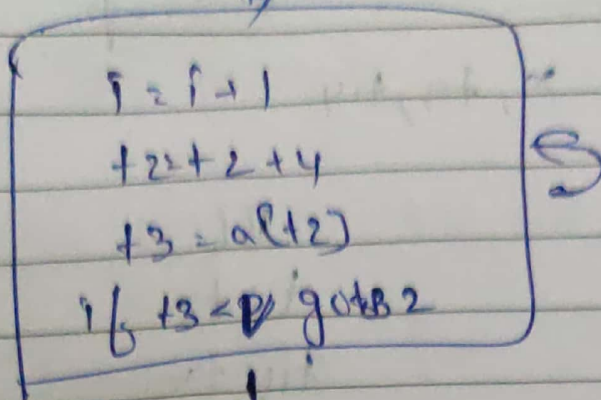 i = i + 1
t2 = t2 + 4
t3 = a[t2]
if t3 < v goto B2